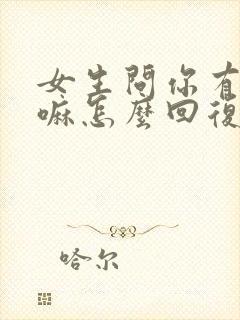 女生問你有
嘛怎麼回復
哈尔